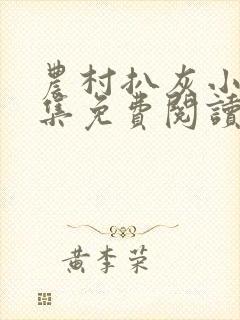 農村扒灰小
集免費閱讀
黄李荣